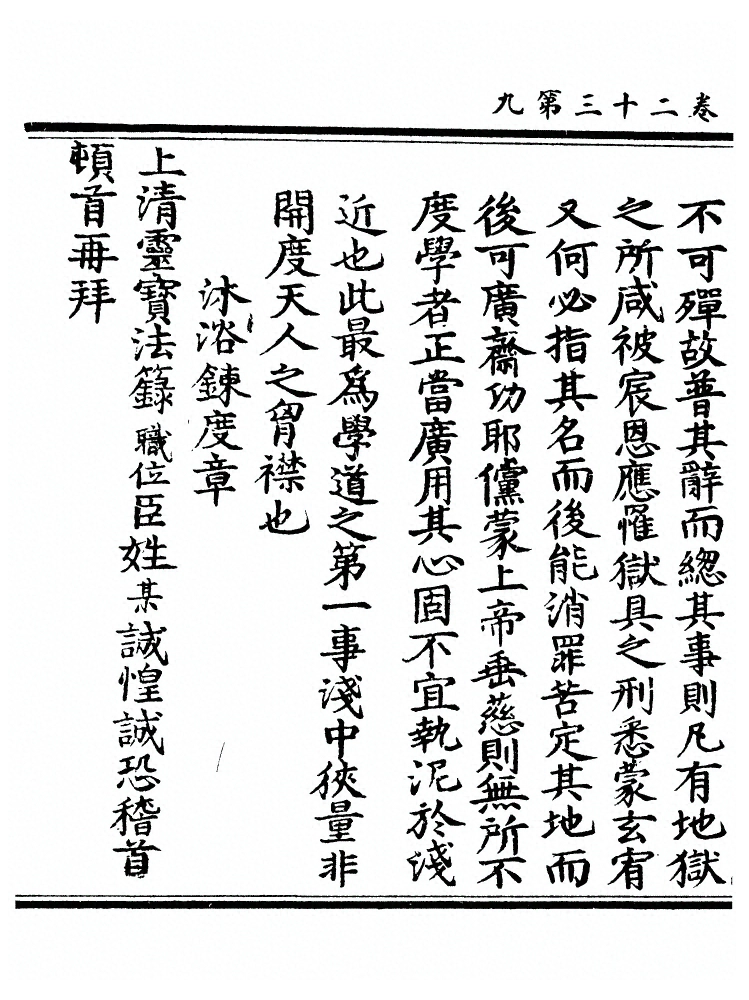 卷二十三第九
不可殫故普其辭而緫其事則凡有地獄
之所咸被宸恩應罹獄具之刑悉蒙玄宥
又何必指其名而後能消罪苦定其地而
後可廣齋功耶儻蒙上帝垂慈則無所不
度學者正當廣用其心固不宜執泥於淺
近也此最爲學道之第一事淺中狹量非
開度天人之胷襟也
沐浴鍊度章
上清靈寶法籙職位臣姓某誠惶誠恐稽首
頓首再拜